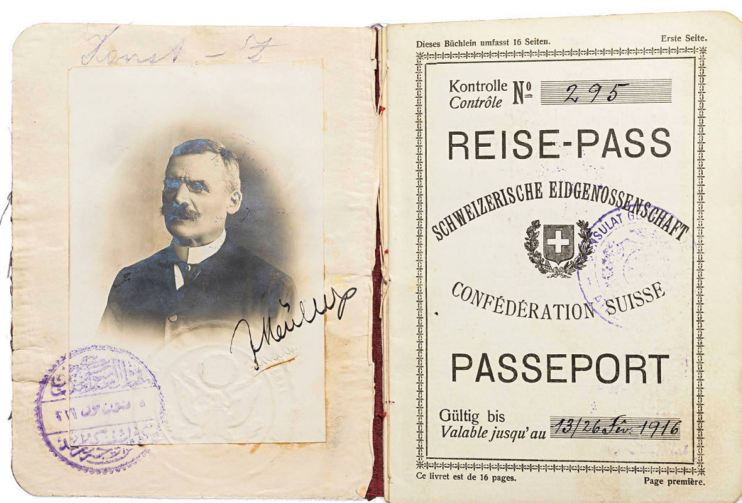 Dieses Büchlein umfasst 16 Seiten. Erste Seite.
Kontrolle
Contrôle Nº 295
REISE-PASS
SCHWEIZERISCHE EIDGENOSSENSCHAFT
CONFÉDÉRATION SUISSE
PASSEPORT
Gültig bis
Valable jusqu'au 13/26 Fév. 1916
Ce livret est de 16 pages. Page première.